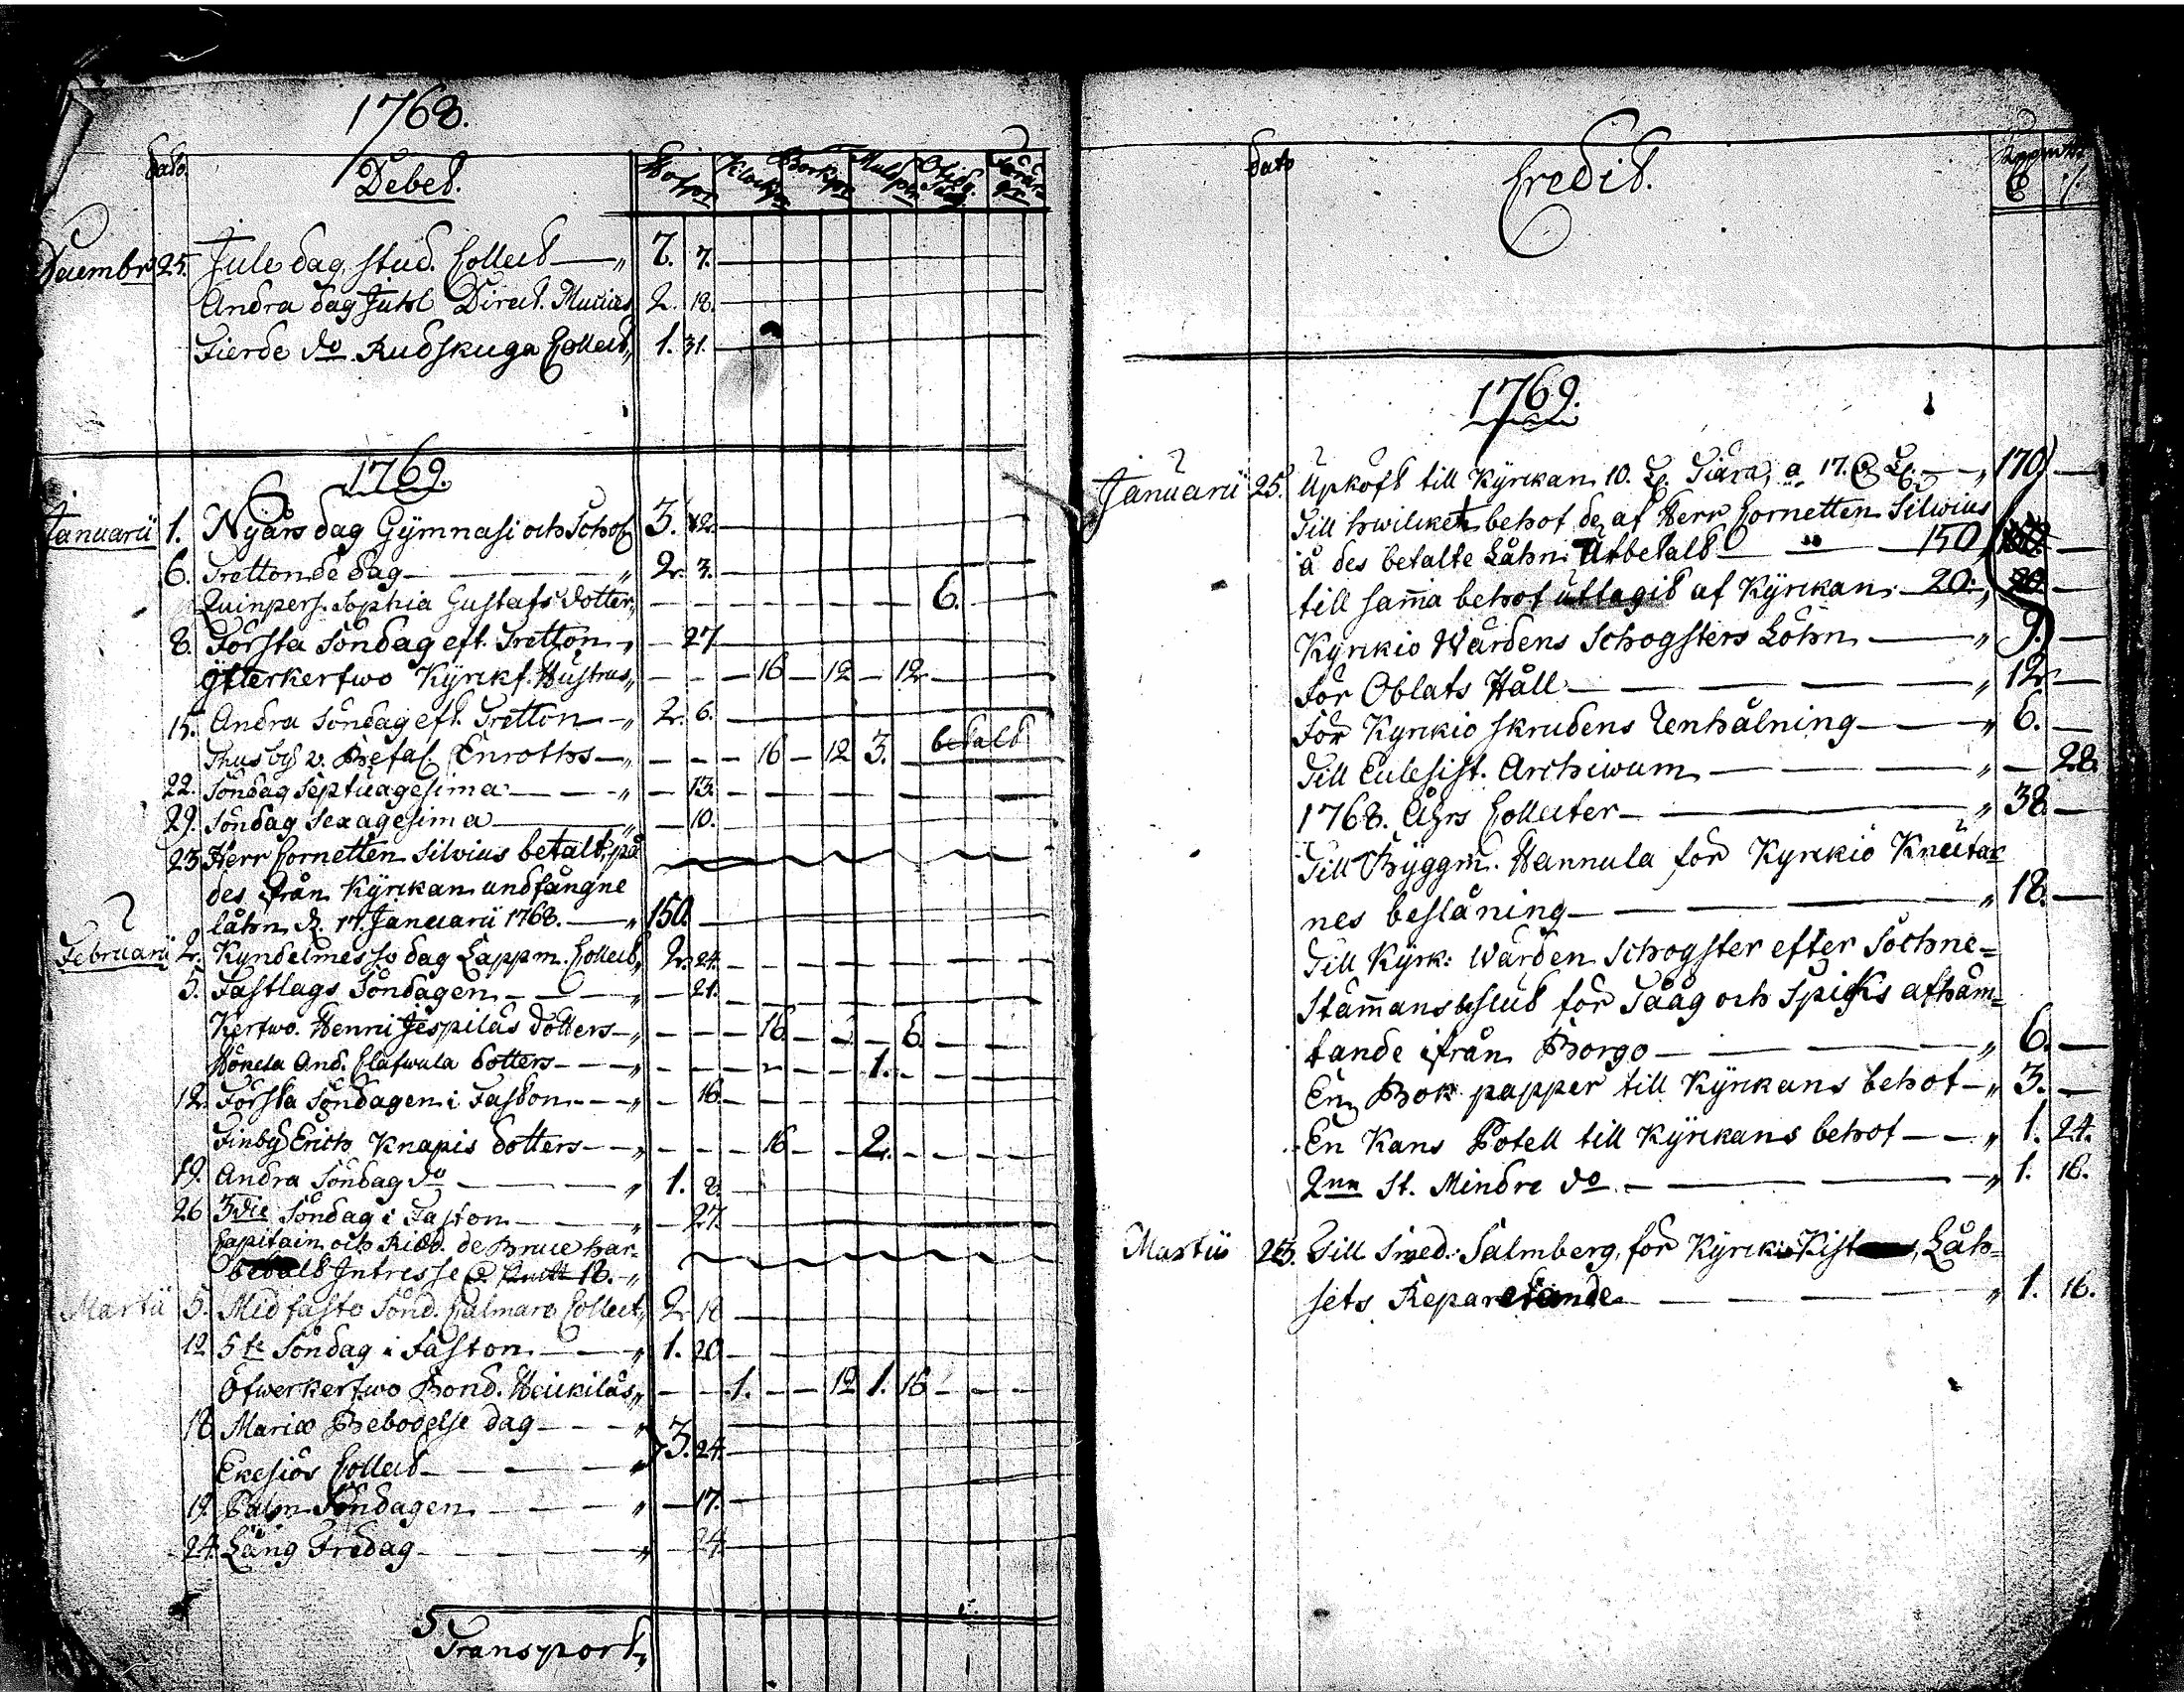 1768.
dato. Debet.
Decembr 25. Jule dag, stud. Collect — 7. 7.
Andra dag Juhl Direct. 2. 18.
Fierde do Rudskuga Collect 1. 31.
1769.
Januarii 1. Nyårs dag Gÿmnasi och Schol 3. 12.
6. Trettonde dag — 2. 3.
Quinpers. Sophia Gustafs dotter — 6.
8. Första Söndag eft. Tretton — 27
Ytterkertwo Kÿrkf. Hustrus — 16 — 12 — 12
15. Andra Söndag eft. Tretton — 2. 6.
Thusby v. Enroths — 16 — 12 3. betalt
22. Söndag Septuagesima — 13.
29. Söndag Sexagesima — 10.
23 Herr Cornetten Silvius betalt, på
des ifrån Kÿrkan undfångne
låhn d. 17. Januarii 1768. — 150.
Februarii 2. Kyndelmesso dag Lappm. Collect 2. 24.
5. Fastlags Söndagen — 21.
Kertwo. Henric Jespilas dotters — 16. — 6.
And. Clafwula dotters — 1.
12. Första Söndagen i Faston — 16.
Finby Erich Knapis dotters — 16 — 2.
19. Andra Söndag do — 1. 8.
26 3die Söndag i Faston — 27.
Capitain och Ridd. de Bruce har
betalt Intresse 18.
Martii 5. Midfasto Sönd. Calmare Collect 2 18
12 5te Söndag i Faston — 1. 20
Öfwerkertwo Bond. Heickilas — 1. — 12 1. 16
18 Mariæ Bebodelse dag —
Ekesiös Collect — 3. 24.
19. Palm Söndagen — 17.
24. Lång Fredag — 24.
Transport
dato Credit.
1769.
Januarii 25. Upköft till Kÿrkan 10. Tiära, a 17. — 170 —
Till hwilket behof de af Herr Cornetten Silwius
å des betalte Låhn Utbetalt — 150
till samma behof uttagit af Kÿrkan 20. 20 —
Kÿrkio Wårdens Schogsters Löhn — 9. —
För Oblats Håll — 12 —
För Kÿrkio skrudens renhålning — 6. —
Till Eclesist. Archiwum — 28.
1768. Åhrs Collecter — 38 —
Till Byggm. Hannula for Kyrkio Knutar
nes beslåning — 18. —
Till Kÿrk: Wården Schogster efter Sochne=
stämans beslut för Såg och Spicks afhäm=
tande ifrån Borgo — 6. —
En Bok papper till Kÿrkans behof — 3. —
En Kans Botell till Kÿrkans behof — 1. 24.
2nn St. Mindre do — 1. 16.
Martii 23. Till Smed. Salmberg, för Kÿrkio Låh=
sets Reparerande — 1. 16.